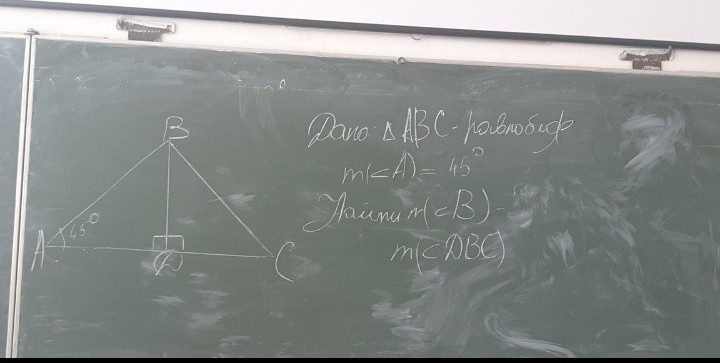 B
A
45°
C
Дано: △ABC - равнобедр
m(<A) = 45°
Найти m(<B) -
m(<DBC)